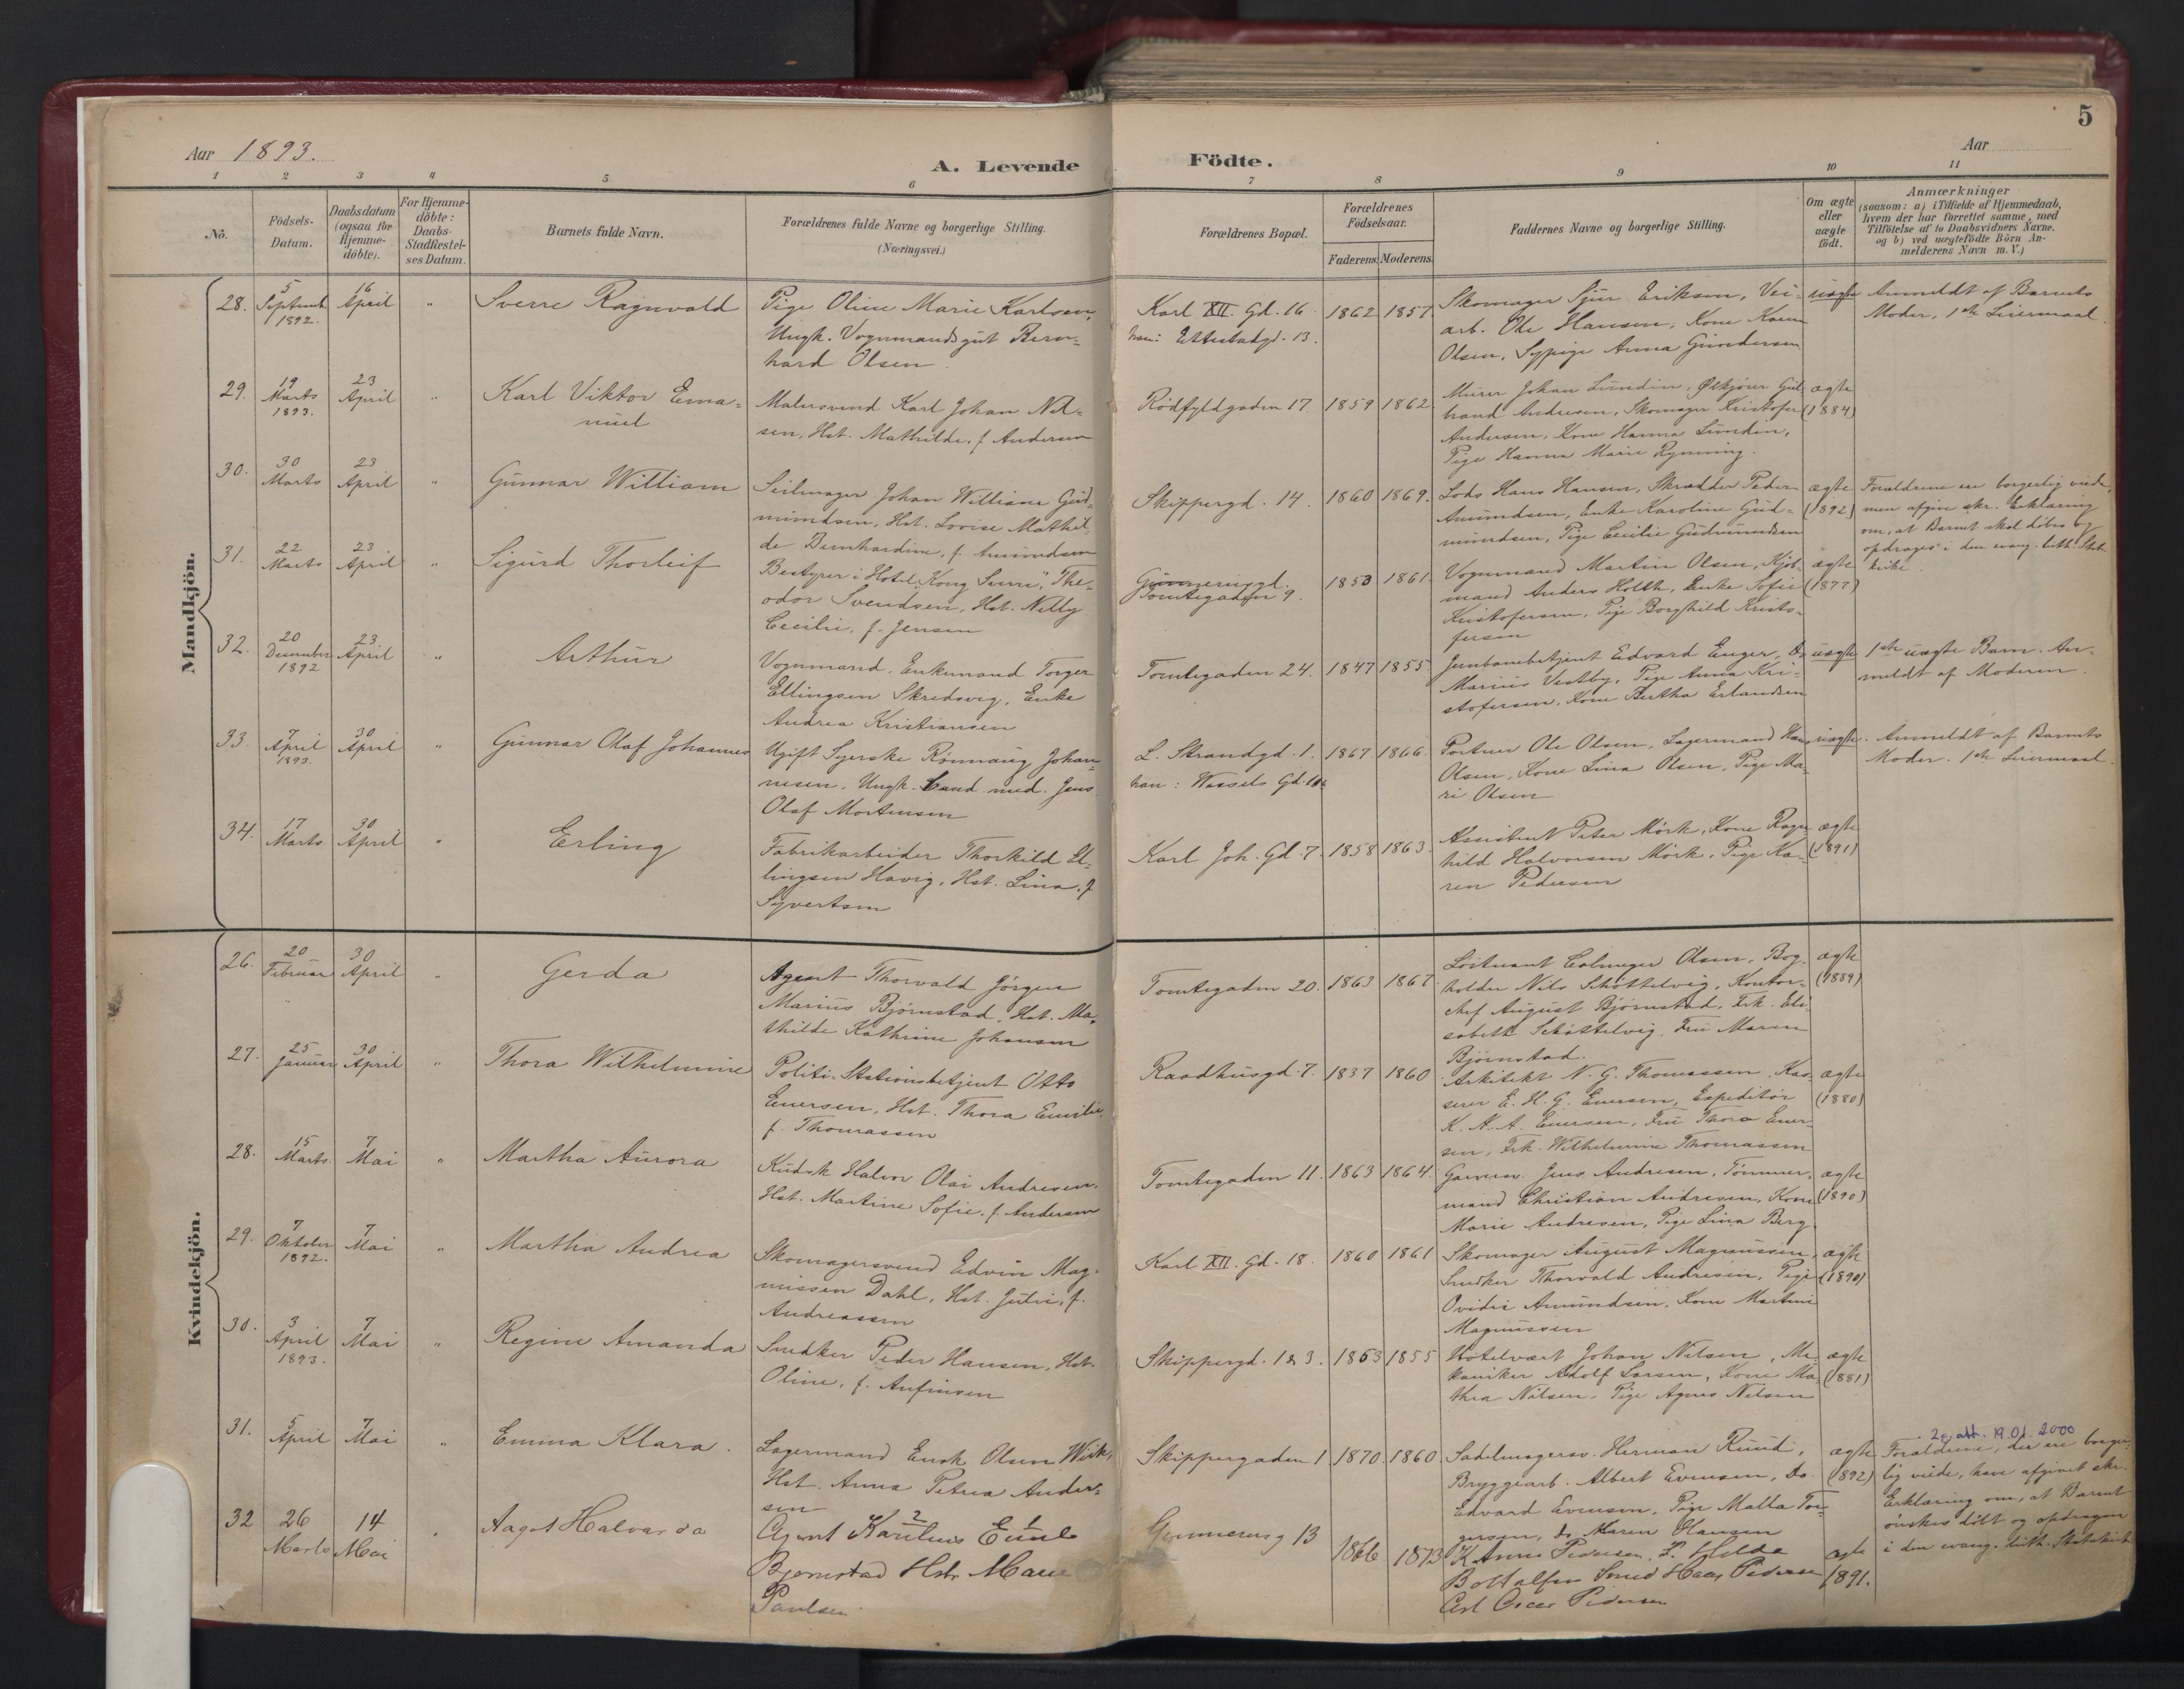 5
Aar 1893.
A. Levende Födte.
Aar
1 2 3 4 5 6 7 8 9 10 11
No.
Födsels-
Datum.
Daabsdatum
(ogsaa for
Hjemme-
döbte).
For Hjemme-
döbte:
Daabs-
Stadfæstel-
ses Datum.
Barnets fulde Navn.
Forældrenes fulde Navne og borgerlige Stilling.
(Næringsvei.)
Forældrenes Bopæl.
Forældrenes
Födselsaar.
Faderens. Moderens.
Faddernes Navne og borgerlige Stilling.
Om ægte
eller
uægte
født.
Anmærkninger
(saasom: a) i Tilfælde af Hjemmedaab,
hvem der har forrettet samme, med
Tilföielse af to Daabsvidners Navne,
og b) ved uægtefödte Börn An-
melderens Navn m. V.)
Mandkjön.
28.
5
Septemb.
1892.
16
April
"
Sverre Ragnvald
Pige Oline Marie Karlsen,
Ungk. Vognmandsgut Bern-
hard Olsen
Karl XII. Gd. 16
han: Ettestadgd. 13.
1862 1857.
Skomager Sjur Eriksen, Vei-
arb. Ole Hansen, Kone Karen
Olsen, Sypige Anna Gundersen
uægte
Anmeldt af Barnets
Moder, 1ste Leiermaal.
29.
19
Marts
1893.
23
April
"
Karl Viktor Ema-
nuel
Malersvend Karl Johan Nil-
sen, Hst. Mathilde, f. Andersen
Rødfyldgaden 17.
1859 1862.
Murer Johan Lundin, Ølkjører Gul
brand Andresen, Skomager Kristofer
Andersen, Kone Hanna Lundin,
Pige Hanna Marie Rynning.
ægte
(1884)
30.
30
Marts
23
April
"
Gunnar William
Seilmager Johan William Gud-
mundsen, Hst. Lovise Mathil-
de Bernhardine, f. Amundsen
Skippergd. 14.
1860 1869.
Lods Hans Hansen, Skrædder Peder
Amundsen, Enke Karoline Gud-
mundsen, Pige Cecilie Gudmundsen
ægte
(1892)
Forældrene ere borgerlig viede,
men afgive skr. Erklæring
om, at Barnet skal döbes og
opdrages i den evang. luth. Stats-
kirke.
31.
22
Marts
23
April
Sigurd Thorleif
Bestyrer i Hotel "Kong Sverre", The-
odor Svendsen, Hst. Nelly
Cecilie, f. Jensen
Gunnerusgd.
Tomtegaden 9.
1853 1861.
Vognmand Martin Olsen, Kjøb-
mand Anders Holth, Enke Sofie
Kristofersen, Pige Borghild Kristo-
fersen
ægte
(1877)
32.
20
December
1892
23
April
"
Arthur
Vognmand, Enkemand Torger
Ellingsen Skredsvig, Enke
Andrea Kristiansen
Tomtegaden 24.
1847 1855
Jernbanebetjent Edvard Enger, Do
Marius Vestby, Pige Anna Kri-
stofersen, Kone Bertha Erlandsen
uægte
1ste uægte Barn. An-
meldt af Moderen.
33.
7
April
1893.
30
April
"
Gunnar Olaf Johannes
Ugift Syerske Rønnaug Johan-
nesen, Ungk. Cand. med. Jens
Olaf Mortensen
L. Strandgd. 1.
han: Wessels Gd.
1867 1866.
Portner Ole Olsen, Lagermand Hans
Olsen, Kone Lina Olsen, Pige Ma-
ri Olsen
uægte.
Anmeldt af Barnets
Moder. 1ste Leiermaal.
34.
17
Marts.
30
April
"
Erling
Fabrikarbeider Thorkild El-
lingsen Havig, Hst. Lina, f.
Syvertsen
Karl Joh. Gd. 7.
1858 1863.
Assistent Peter Mørk, Kone Ragn-
hild Halvorsen Mørk, Pige Ka-
ren Pedersen
ægte
(1891)
Kvindekjön.
26.
20
Februar
30
April
"
Gerda
Agent Thorvald Jörgen
Marius Bjørnstad, Hst. Ma-
thilde Kathrine Johansen
Tomtegaden 20.
1863 1867.
Loitnant Olsen, Bog-
holder Nils Schøttelvig, Kontor-
chef August Bjørnstad, Frk. Eli-
sabeth Schøttelvig, Fru Maren
Bjørnstad.
ægte
(1889)
27.
25
Januar
30
April
"
Thora Wilhelmine
Politi-Stationsbetjent Otto
Enersen, Hst. Thora Emilie,
f. Thomassen
Raadhusgd. 7.
1837 1860
Arkitekt N. G. Thomassen, Kas-
serer E. H. G. Enersen, Expeditör
K. A. A. Enersen, Fru Thora Ener-
sen, Frk. Wilhelmine Thomassen
ægte
(1880)
28.
15
Marts.
7
Mai
"
Martha Aurora
Kudsk Halvor Olai Andresen,
Hst. Martine Sofie, f. Andersen
Tomtegaden 11.
1863 1864.
Garversv. Jens Andresen, Tömmer-
mand Christian Andresen, Kone
Marie Andresen, Pige Lina Berg
ægte
(1890)
29.
7
Oktober
1892.
7
Mai
"
Martha Andrea
Skomagersvend Edvin Mag-
nussen Dahl, Hst. Julie, f.
Andreassen
Karl XII. Gd. 18.
1860 1861
Skomager August Magnussen,
Snedker Thorvald Andresen, Pige
Ovidie Amundsen, Kone Martine
Magnussen
ægte
(1890)
30.
3
April
1893.
7
Mai
"
Regine Amanda
Snedker Peder Hansen, Hst.
Oline, f. Anfinsen
Skippergd. 1 & 3.
1853 1855
Hotelvært Johan Nilsen, Me-
kaniker Adolf Larsen, Kone Ma-
thea Nilsen, Pige Agnes Nilsen
ægte
(1881)
31.
5
April
7
Mai
"
Emma Klara.
Lagermand Enok Olsen Wiik,
Hst. Anna Petrea Ander-
sen
Skippergaden 1
1870. 1860
Sadelmagersv. Herman Ruud,
Bryggearb. Albert Evensen, Do.
Edvard Evensen, Pige Malla Tor-
gersen, do Maren Hansen
ægte
(1892)
2g. att. 19.01.2000
Forældrene, der ere borger-
lig viede, have afgivet skr.
Erklæring om, at Barnet
ønskes døbt og opdragen
i den evang. luth. Statskirke
32
26
Marts
14
Mai
"
Aagot Halvarda
2 1
Agent Karelius Emil
Bjørnstad Hstr Marie
Paulsen
Gunnerusg 13
1866 1873
K Anna Pedersen, F. Hilda
Smed Haax Pedersen
Carl Oscar Pedersen
ægte
1891.